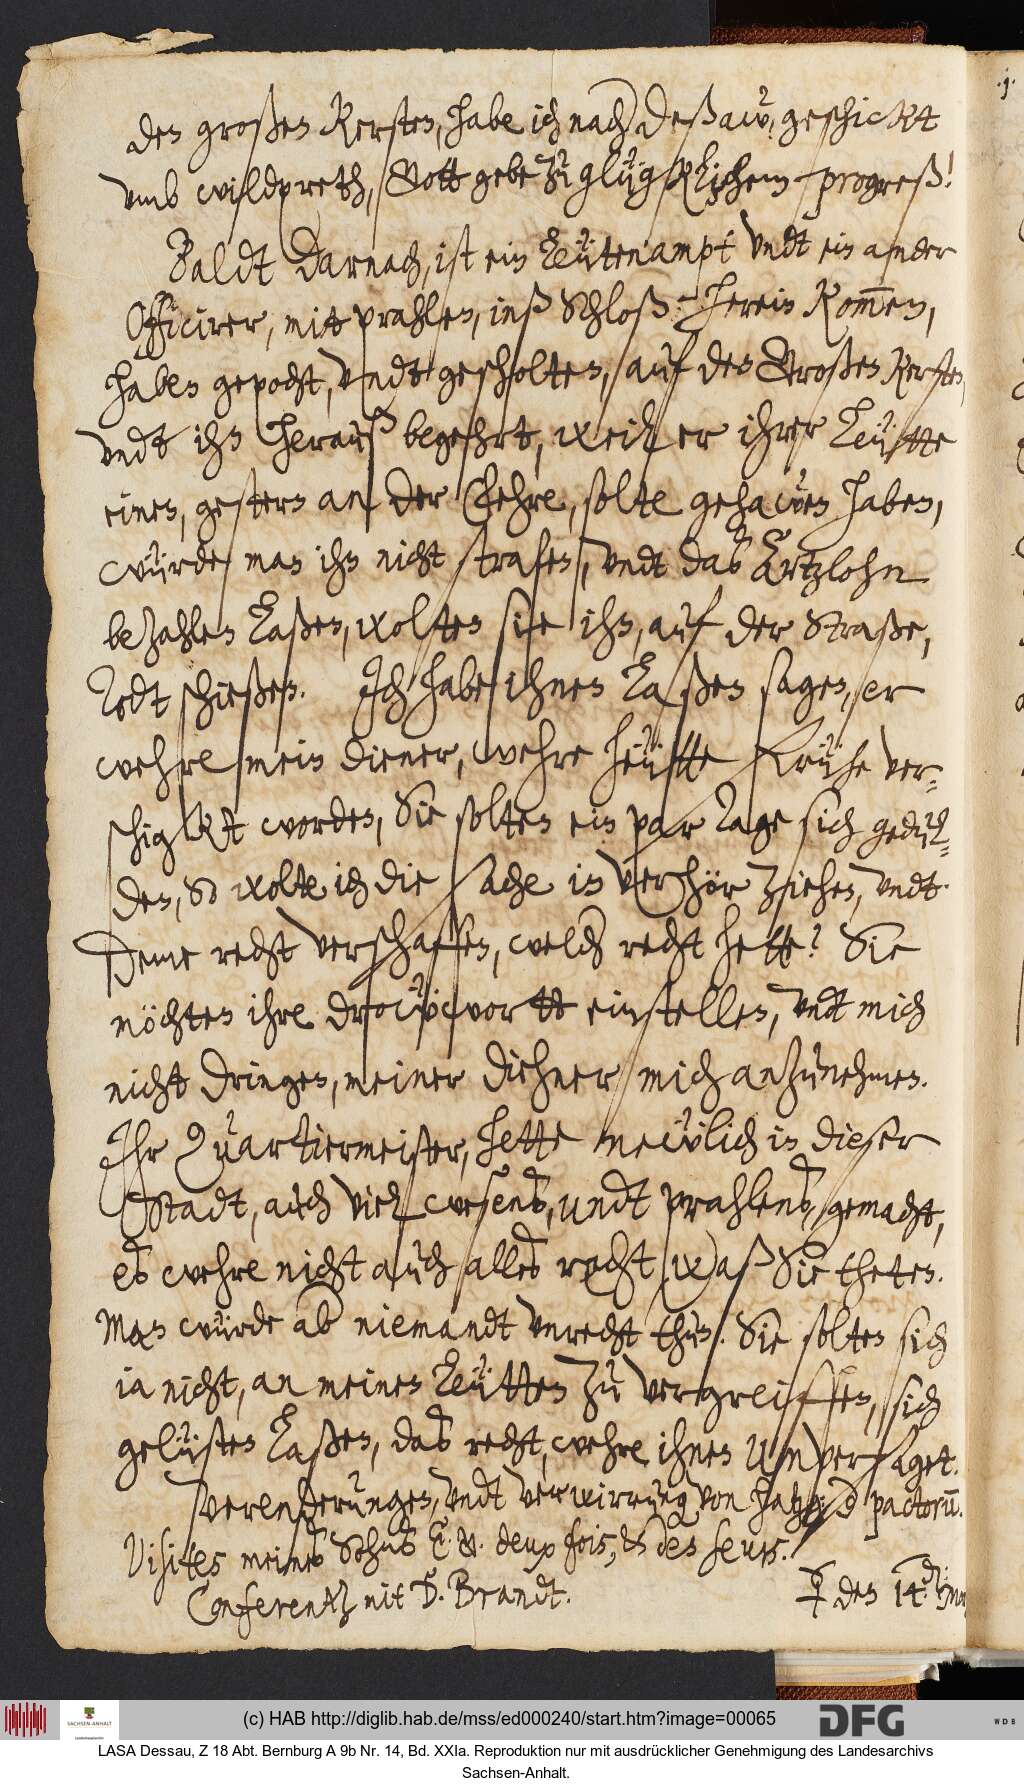 den großen Kersten, habe ich nach Deßaw, geschickt
umb wildpreth, Gott gebe zu glügklichem progreß!
Baldt darnach, ist ein Leütenampt undt ein ander
Officirer, mitt prahlen, inß Schloß herein kommen,
haben gepocht, undt gescholten, auf den Großen Kersten
undt ihn herauß begehrt, weil er ihrer Leütte
einen, gestern an der Fehre, solte gehawen haben,
würde man ihn nicht strafen, undt das Ärtzlohn
bezahlen laßen, wolten sie ihn, auf der Straße,
Todt schießen. Ich habe ihnen laßen sagen, er
wehre mein diener, wehre heütte frühe ver-
schigkt worden, Sie solten ein par Tage sich gedul-
den, So wolte ich die sache in verhör ziehen, undt
deme recht verschaffen, welch recht hette? Sie
möchten ihre drowwortt einstellen, undt mich
nicht dringen, meiner diehner mich anzunehmen.
Ihr Quartiermeister, hette newlich in dieser
Stadt, auch viel wesens, undt prahlens, gemacht,
es wehre nicht auch alles recht, waß Sie theten.
Man würde ab niemandt unrecht thun. Sie solten sich
ia nicht, an meinen Leütten zu vergreiffen, sich
gelüsten laßen, das recht, wehre ihnen unversaget.
Verenderungen, undt verwirrung von pactorum.
Visites meines Sohns E. A. deux fois, & des seurs.
Conferentz mit D. Brandt.
den 14. den
(c) HAB http://diglib.hab.de/mss/ed000240/start.htm?image=00065
SACHSEN-ANHALT
DFG
WDB
LASA Dessau, Z 18 Abt. Bernburg A 9b Nr. 14, Bd. XXIa. Reproduktion nur mit ausdrücklicher Genehmigung des Landesarchivs
Sachsen-Anhalt.